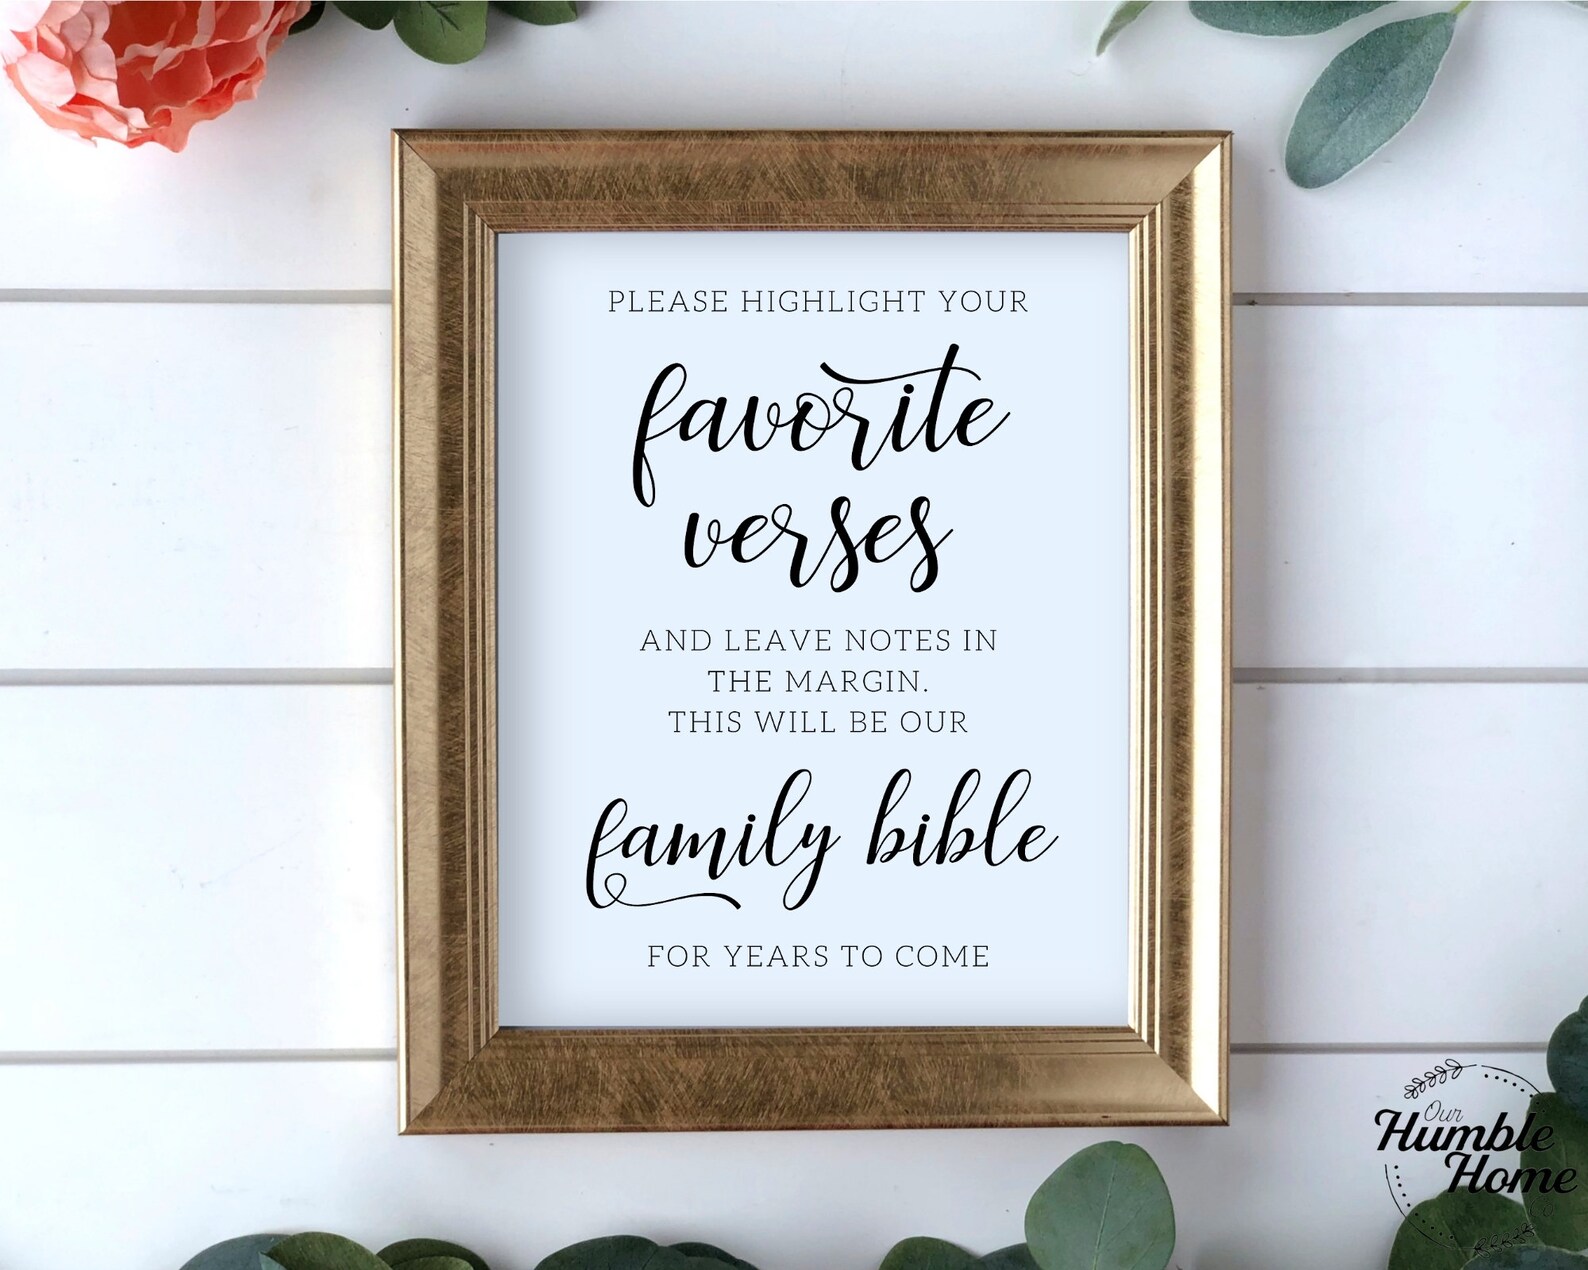 PLEASE HIGHLIGHT YOUR
favorite
verses
AND LEAVE NOTES IN
THE MARGIN.
THIS WILL BE OUR
family bible
FOR YEARS TO COME
Our
Humble
Home
Co